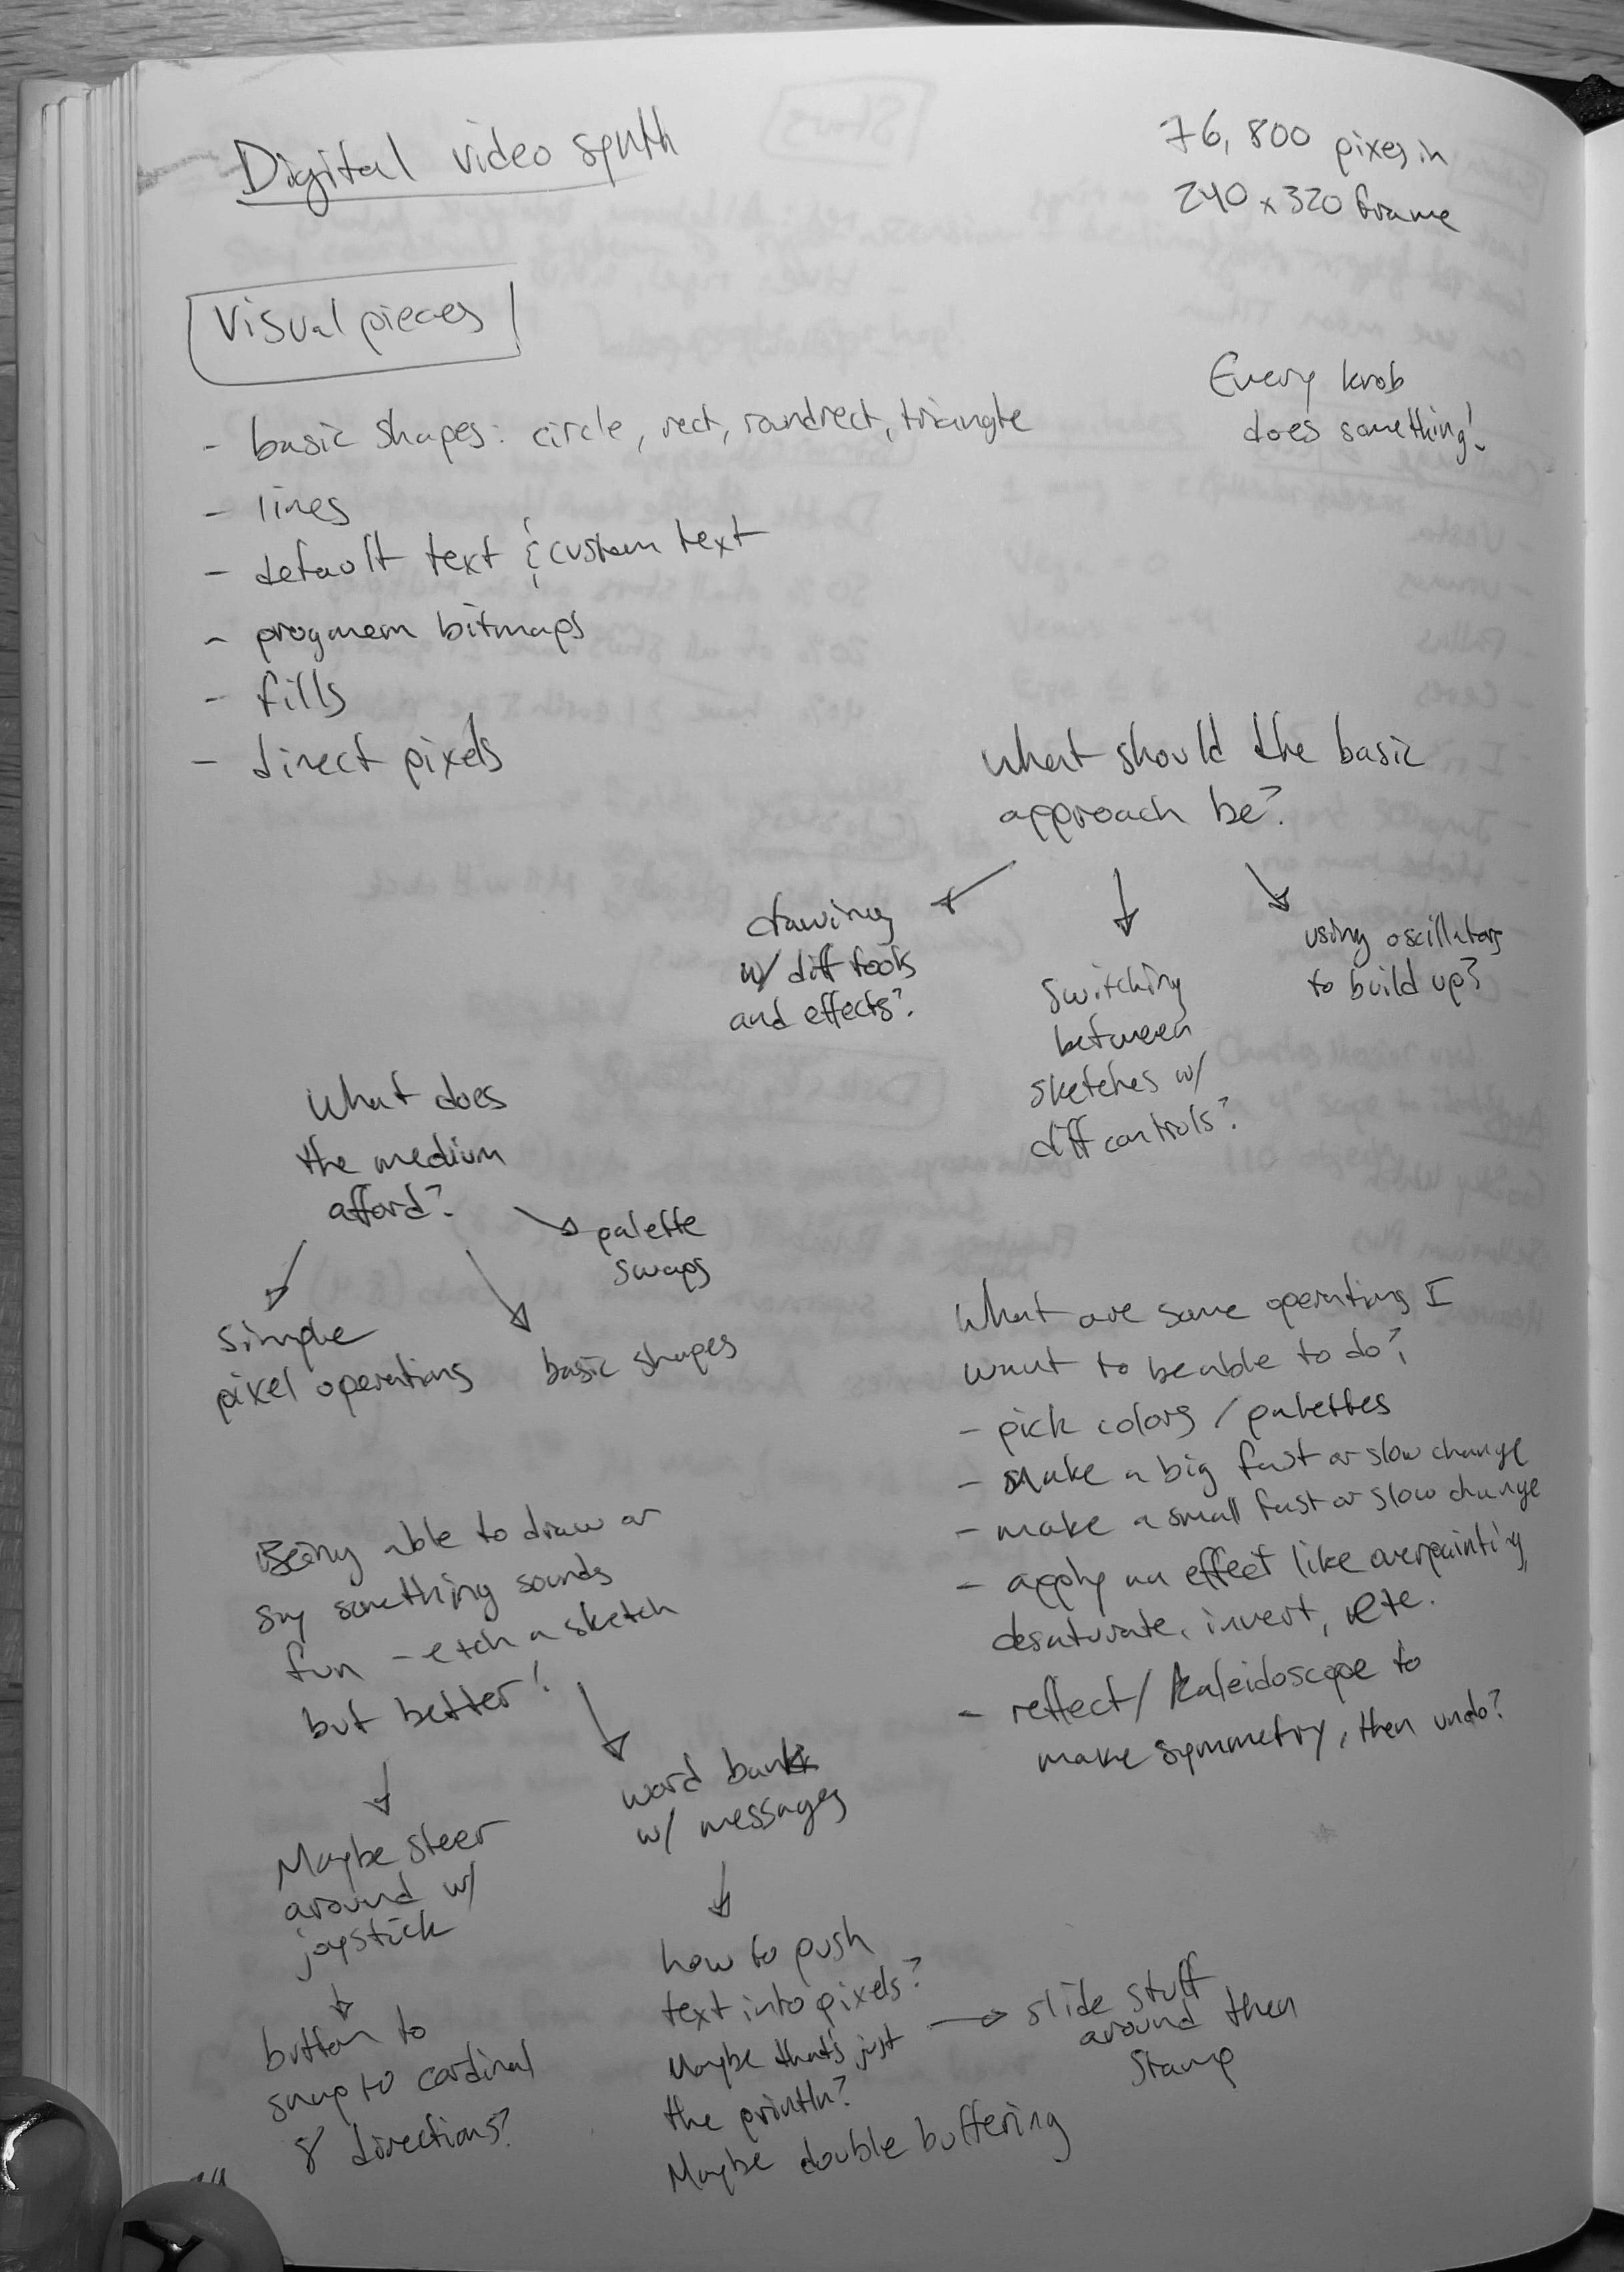 Digital video synth
76,800 pixes in
240 x 320 frame
Visual pieces
Every knob
does something!
- basic shapes: circle, rect, roundrect, triangle
- lines
- default text & custom text
- progmem bitmaps
- fills
- direct pixels
What should the basic
approach be?
drawing
w/ diff tools
and effects?
switching
between
sketches w/
diff controls?
using oscillators
to build up?
What does
the medium
afford?
palette
swaps
simple
pixel operations
basic shapes
What are some operations I
want to be able to do?
- pick colors / palettes
- make a big fast or slow change
- make a small fast or slow change
- apply an effect like overpainting,
desaturate, invert, etc.
- reflect / kaleidoscope to
make symmetry, then undo?
Being able to draw or
say something sounds
fun - etch a sketch
but better!
Maybe steer
around w/
joystick
button to
snap to cardinal
8 directions?
word bank
w/ messages
how to push
text into pixels?
Maybe that's just
the println?
Maybe double buffering
slide stuff
around then
stamp